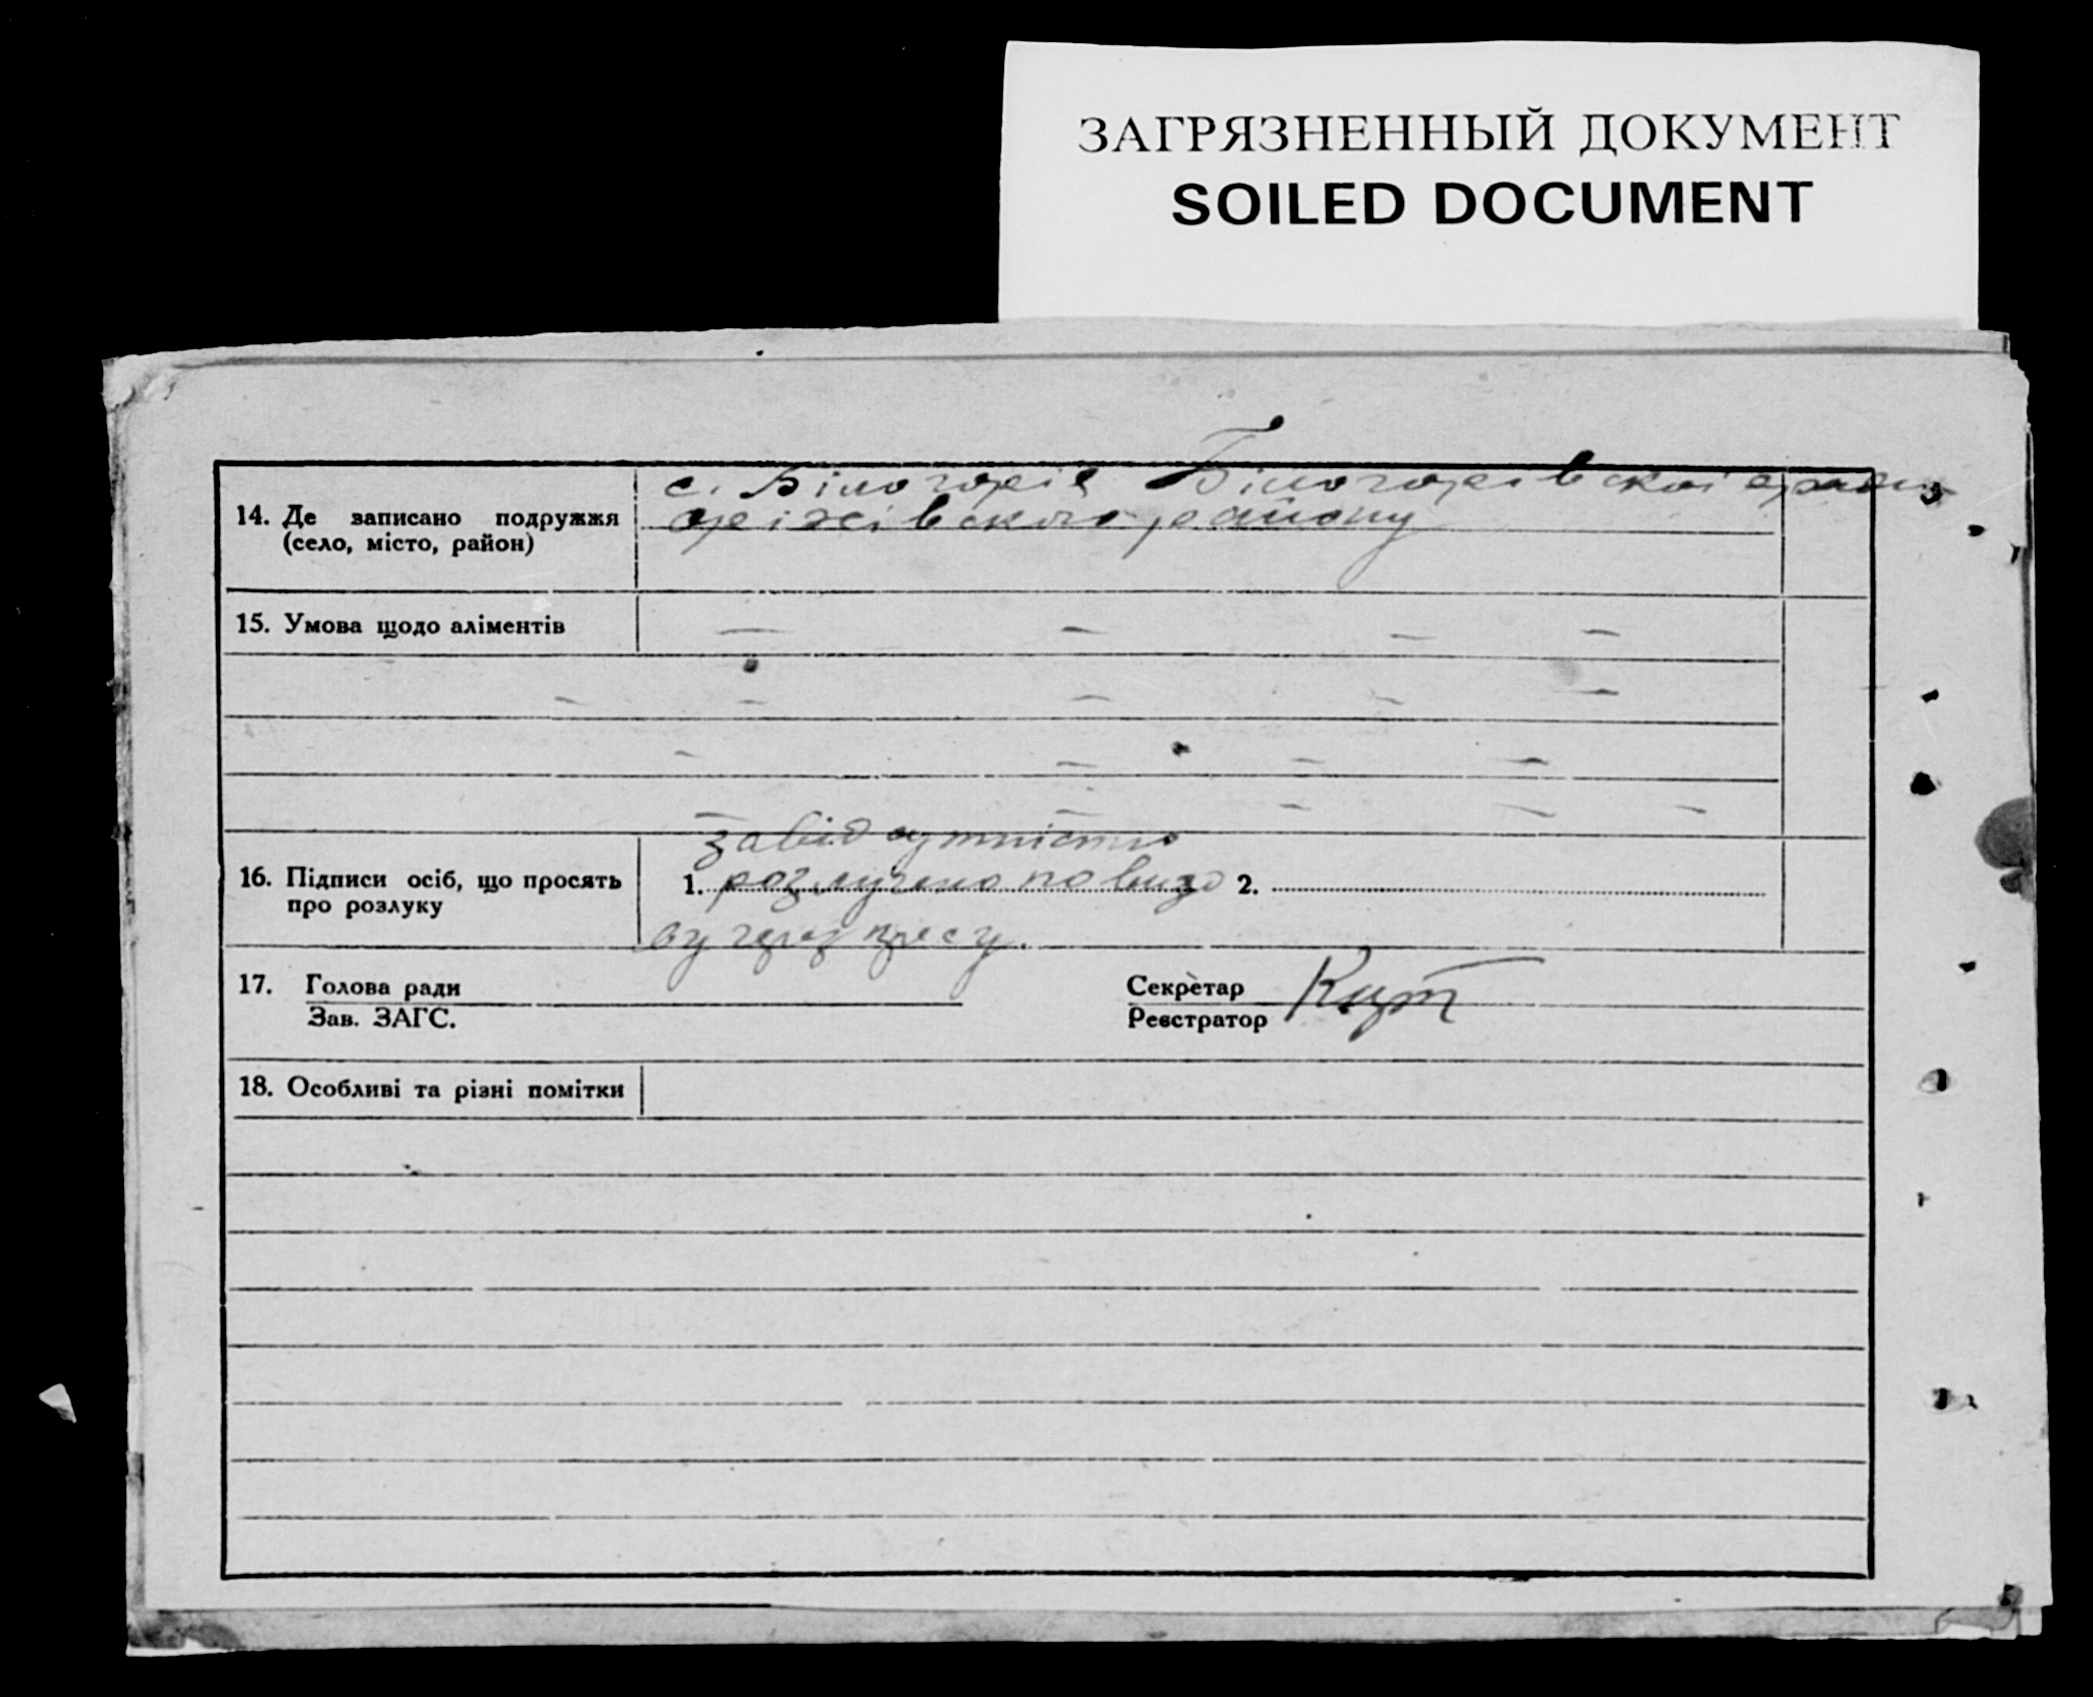 ЗАГРЯЗНЕННЫЙ ДОКУМЕНТ
SOILED DOCUMENT
с. Білогорїе Білогорівскої сради
14. Де записано подружжя
(село, місто, район)
оріхівского району
15. Умова щодо аліментів
— — — —
— — — — —
— — — —
— — — — —
завідсутністю
16. Підписи осіб, що просять
про розлуку
1. розлучено по визо 2.
ву через пресу.
17. Голова ради
Зав. ЗАГС.
Секретар
Реєстратор
18. Особливі та різні помітки